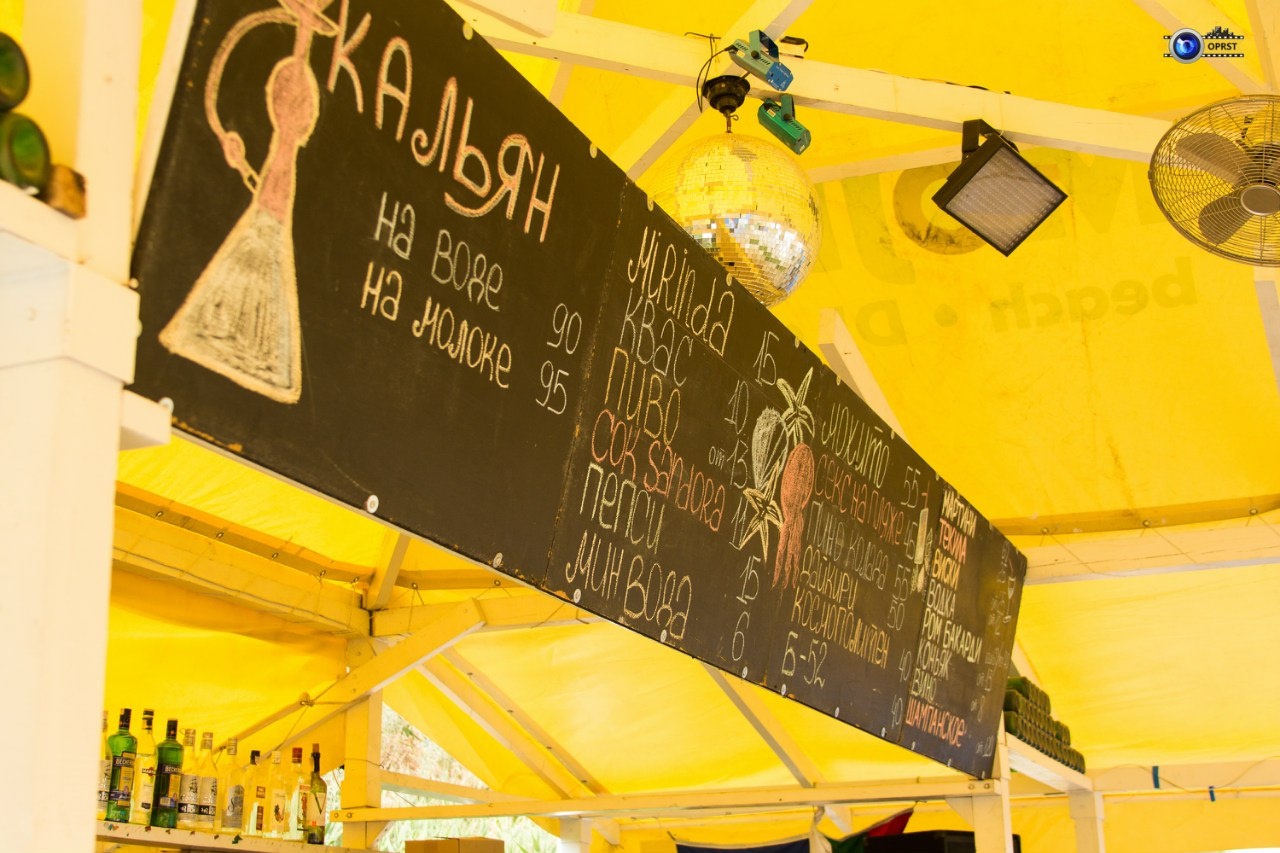 КАЛЬЯН
на воде 90
на молоке 95
Mirinda 15
Квас 10
Пиво от 13
Сок Sandora
Пепси 15
Мин Вода 6
Мохито 55
Секс на пляже
Пино колада 55
Дайкири 50
Космополитен 40
Б-52 40
МАРТИНИ
ТЕКИЛА
ВИСКИ
ВОДКА
РОМ БАКАРДИ
КОНЬЯК
ВИНО
ШАМПАНСКОЕ
OPRST
beach